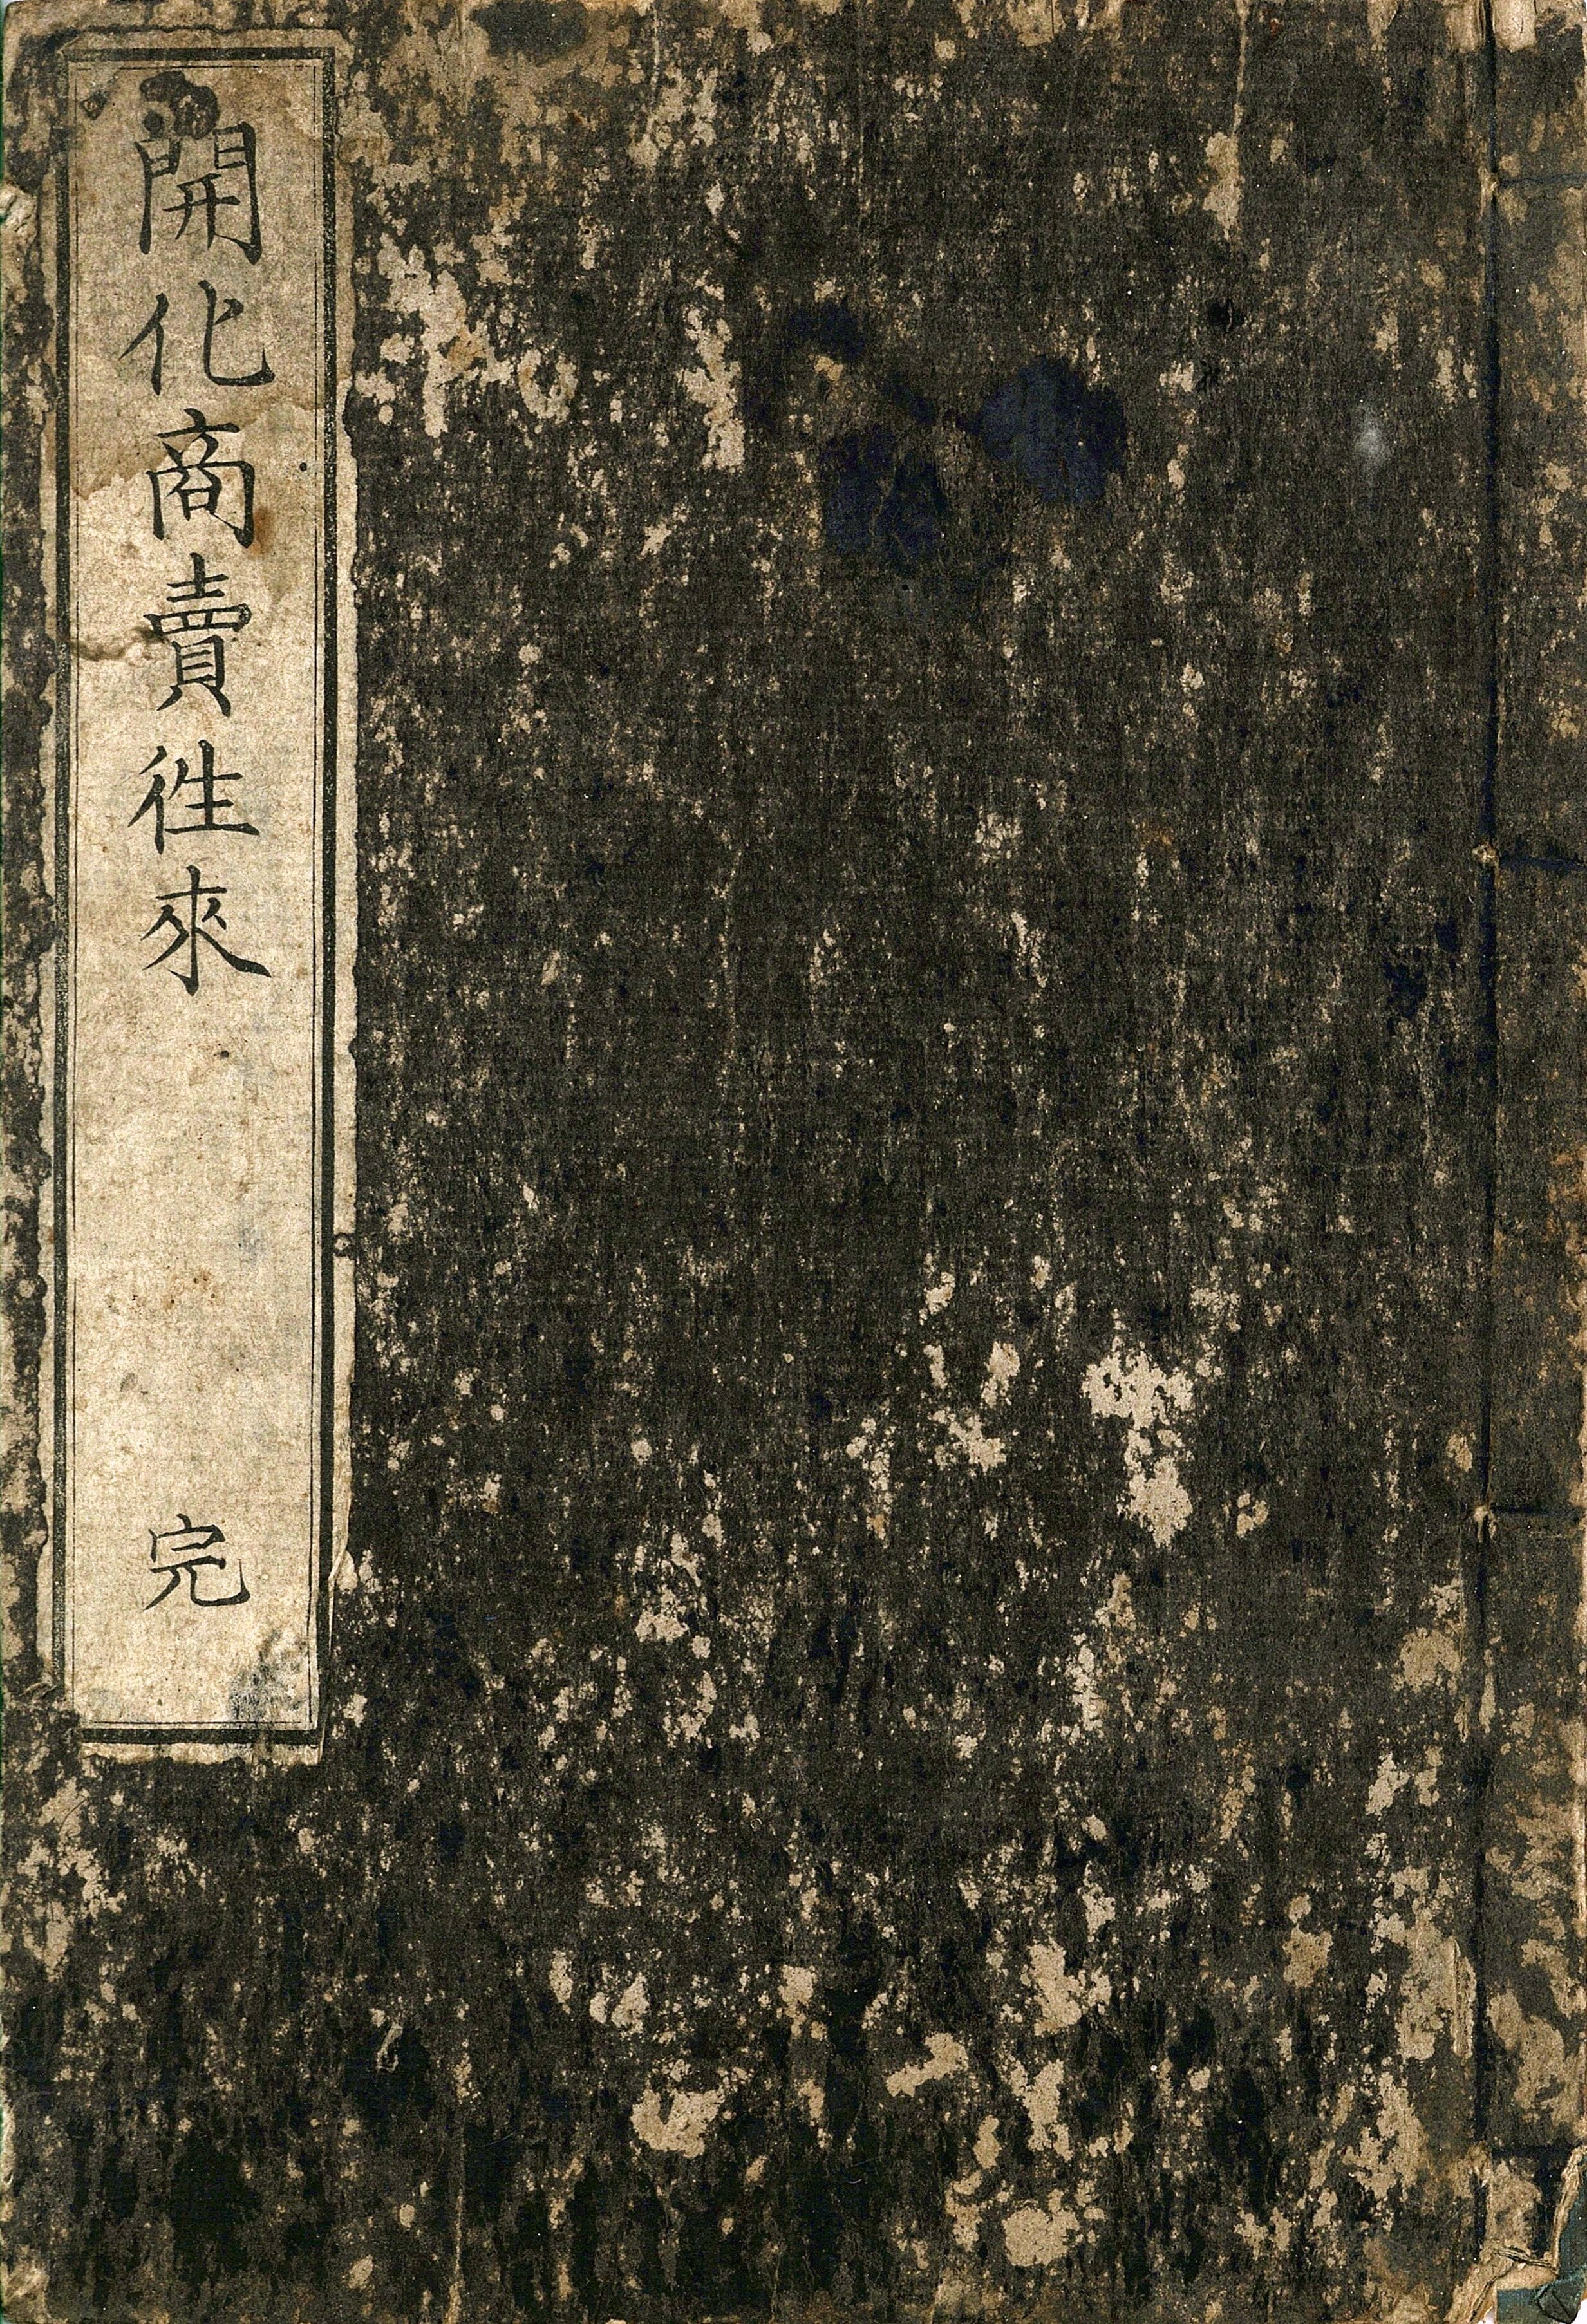 開化商賣徃來
完